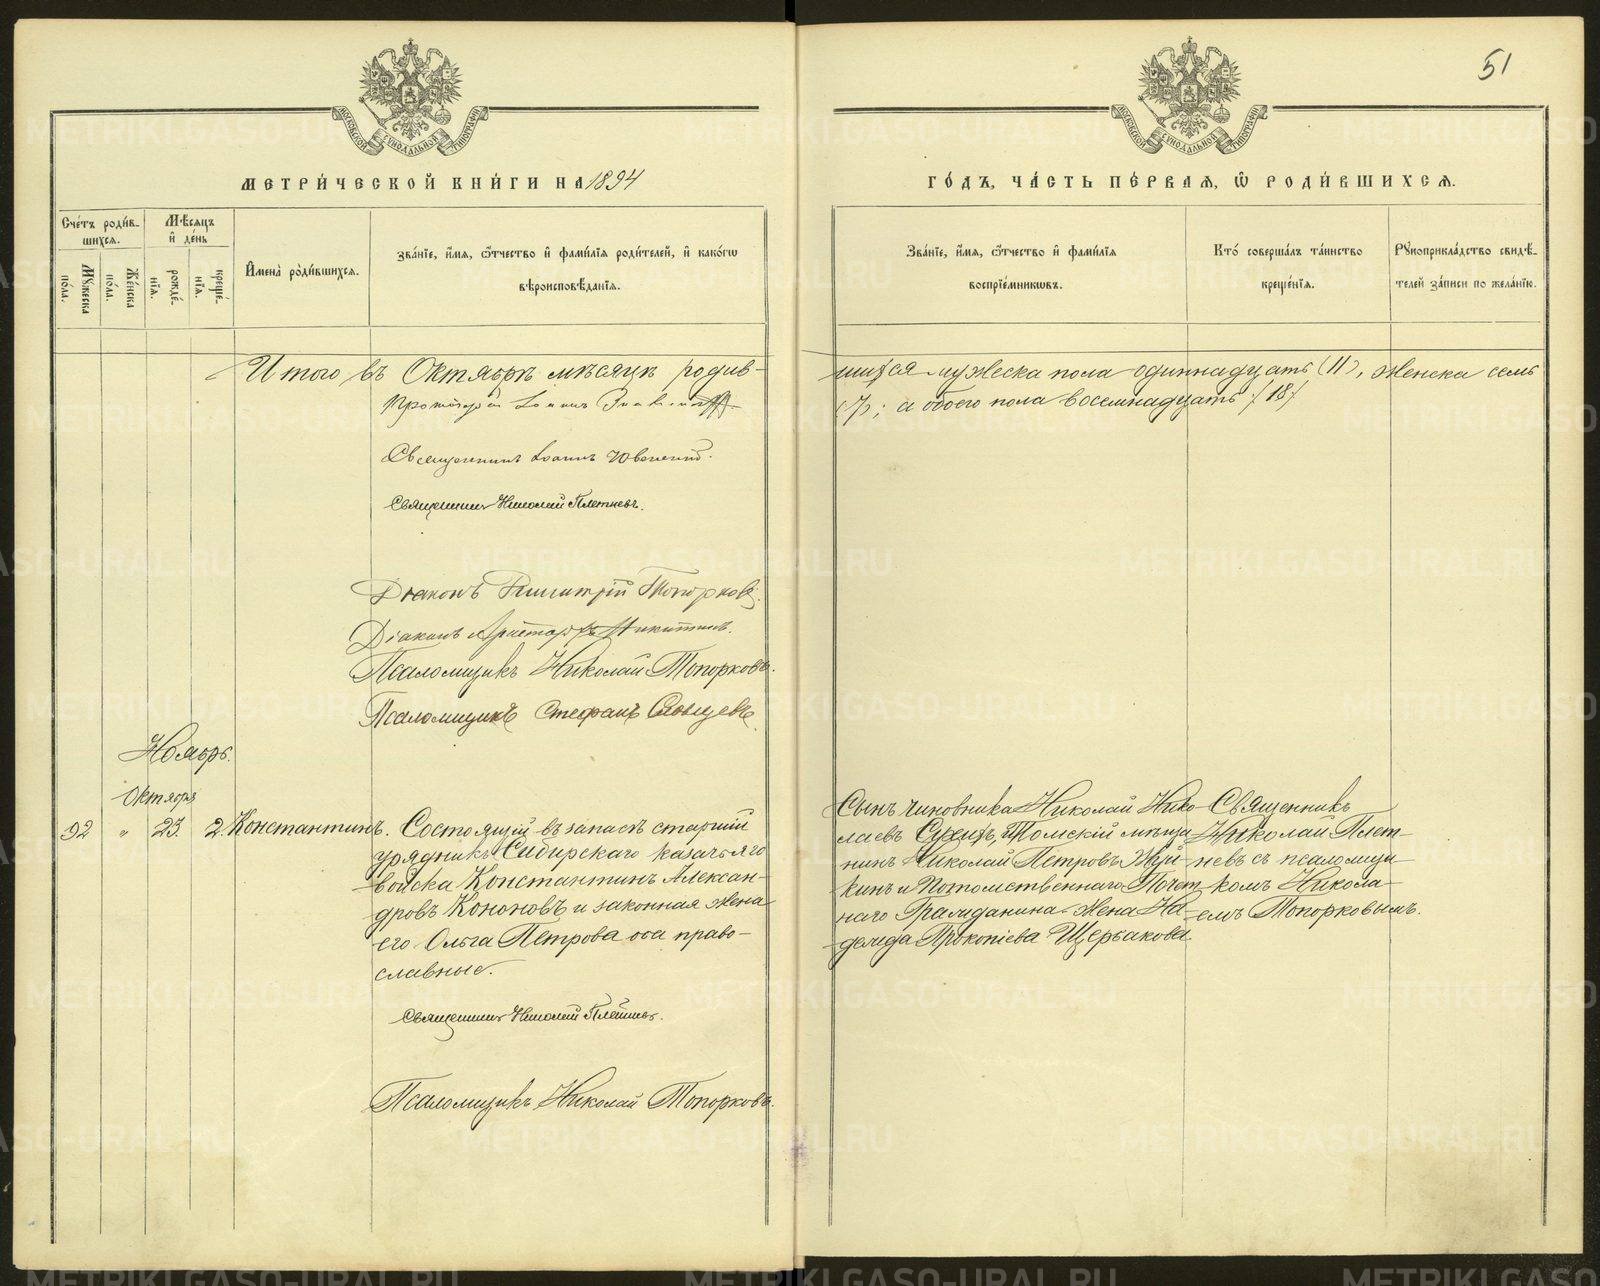 51
МОСКОВСКОЙ СѴНОДАЛЬНОЙ ТИПОГРАФІИ
МОСКОВСКОЙ СѴНОДАЛЬНОЙ ТИПОГРАФІИ
МЕТРИ́ЧЕСКОЙ КНИ́ГИ НА 1894
ГО́ДЪ, ЧА́СТЬ ПЕ́РВАЯ, Ѿ РОДИ́ВШИХСЯ.
Сче́тъ роди́в-
шихся.
Мꙋ́жеска по́ла.
Же́нска по́ла.
Мѣ́сяцъ и҆ де́нь
рожде́-нїя.
креще́-нїя.
И҆мена̀ роди́вшихся.
Зва́нїе, и҆́мя, ѻ҆́тчество и҆ фами́лїя роди́телей, и҆ како́гѡ
вѣроисповѣ́данїя.
Зва́нїе, и҆́мя, ѻ҆́тчество и҆ фами́лїя
воспрїе́мникѡвъ.
Кто̀ соверша́лъ та́инство
креще́нїя.
Рꙋкоприкла́дство свидѣ́-
телей за́писи по жела́нїю.
Итого въ Октябрѣ мѣсяцѣ родив-
шихся мужеска пола одиннадцать (11), женска семь
(7); а обоего пола восемнадцать /18/
Протоіерей Іоаннъ
Священникъ Іоаннъ
Священникъ Николай Плетневъ.
Діаконъ Димитрій Топорковъ.
Діаконъ Аристархъ Никитинъ.
Псаломщикъ Николай Топорковъ.
Псаломщикъ Стефанъ
Ноябрь.
Октября
92 " 23. 2. Константинъ.
Состоящій въ запасѣ старшій
урядникъ Сибирскаго казачьяго
войска Константинъ Алексан-
дровъ Кононовъ и законная жена
его Ольга Петрова оба право-
славные.
Священникъ Николай Плетневъ.
Псаломщикъ Николай Топорковъ.
Сынъ чиновника Николай Нико-
лаевъ Сухихъ, Томскій мѣща-
нинъ Николай Петровъ
и Потомственнаго Почет-
наго Гражданина жена На-
дежда Прокопіева Щербакова.
Священникъ
Николай Плет-
невъ съ псаломщи-
комъ Никола-
емъ Топорковымъ.
METRIKI.GASO-URAL.RU